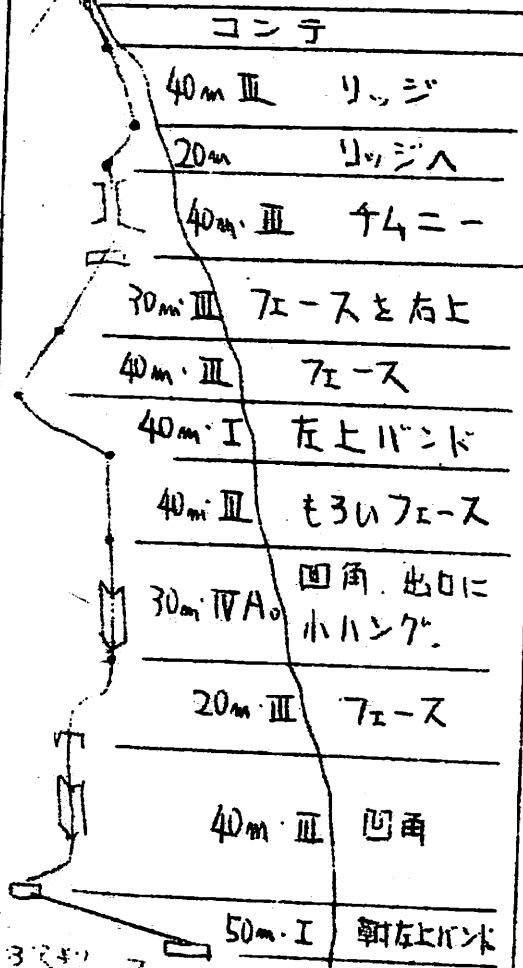 コンテ
40m III リッジ
20m リッジへ
40m・III チムニー
30m・III フェースを右上
40m・III フェース
40m・I 左上バンド
40m・III もろいフェース
30m・IV A0 凹角. 出口に
小ハング.
20m・III フェース
40m・III 凹角
50m・I 左上バンド